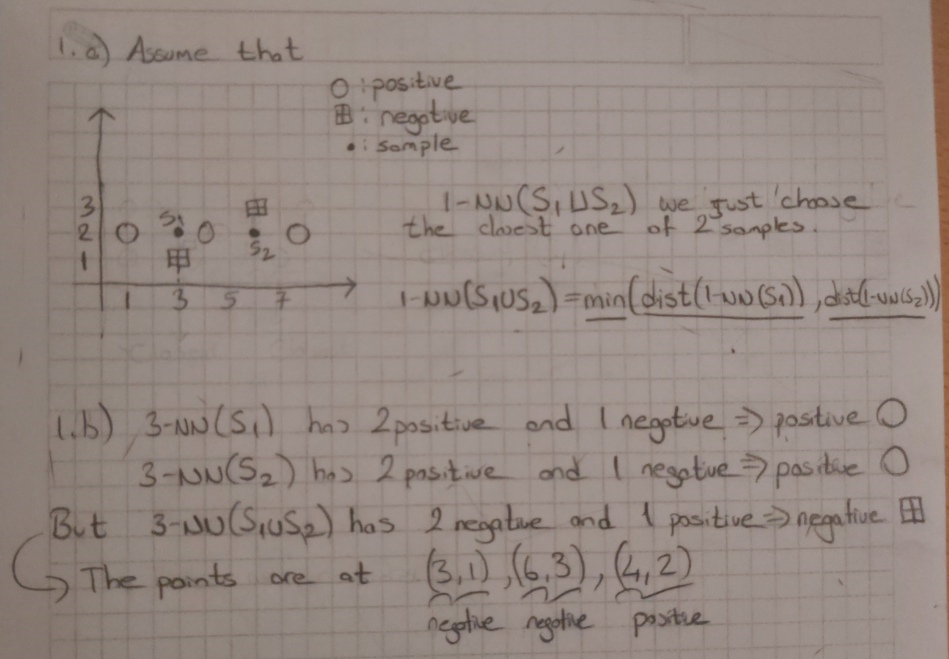 1. a) Assume that
O : positive
⊞ : negative
• : sample
3
2
1
S1
S2
1 3 5 7
1-NN(S1 ∪ S2) we just choose
the closest one of 2 samples.
1-NN(S1∪S2) = min(dist(1-NN(S1)), dist(1-NN(S2)))
1.b) 3-NN(S1) has 2 positive and 1 negative ⇒ positive O
3-NN(S2) has 2 positive and 1 negative ⇒ positive O
But 3-NN(S1∪S2) has 2 negative and 1 positive ⇒ negative ⊞
↪ The points are at (3,1), (6,3), (4,2)
negative negative positive